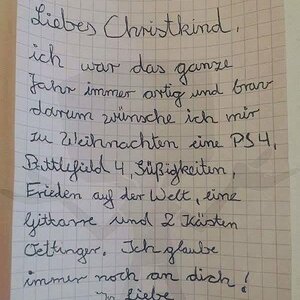 Liebes Christkind,
ich war das ganze
Jahr immer artig und brav
darum wünsche ich mir
zu Weihnachten eine PS4,
Battlefield 4, Süßigkeiten,
Frieden auf der Welt, eine
Gittarre und 2 Kästen
Oettinger. Ich glaube
immer noch an dich!
In Liebe